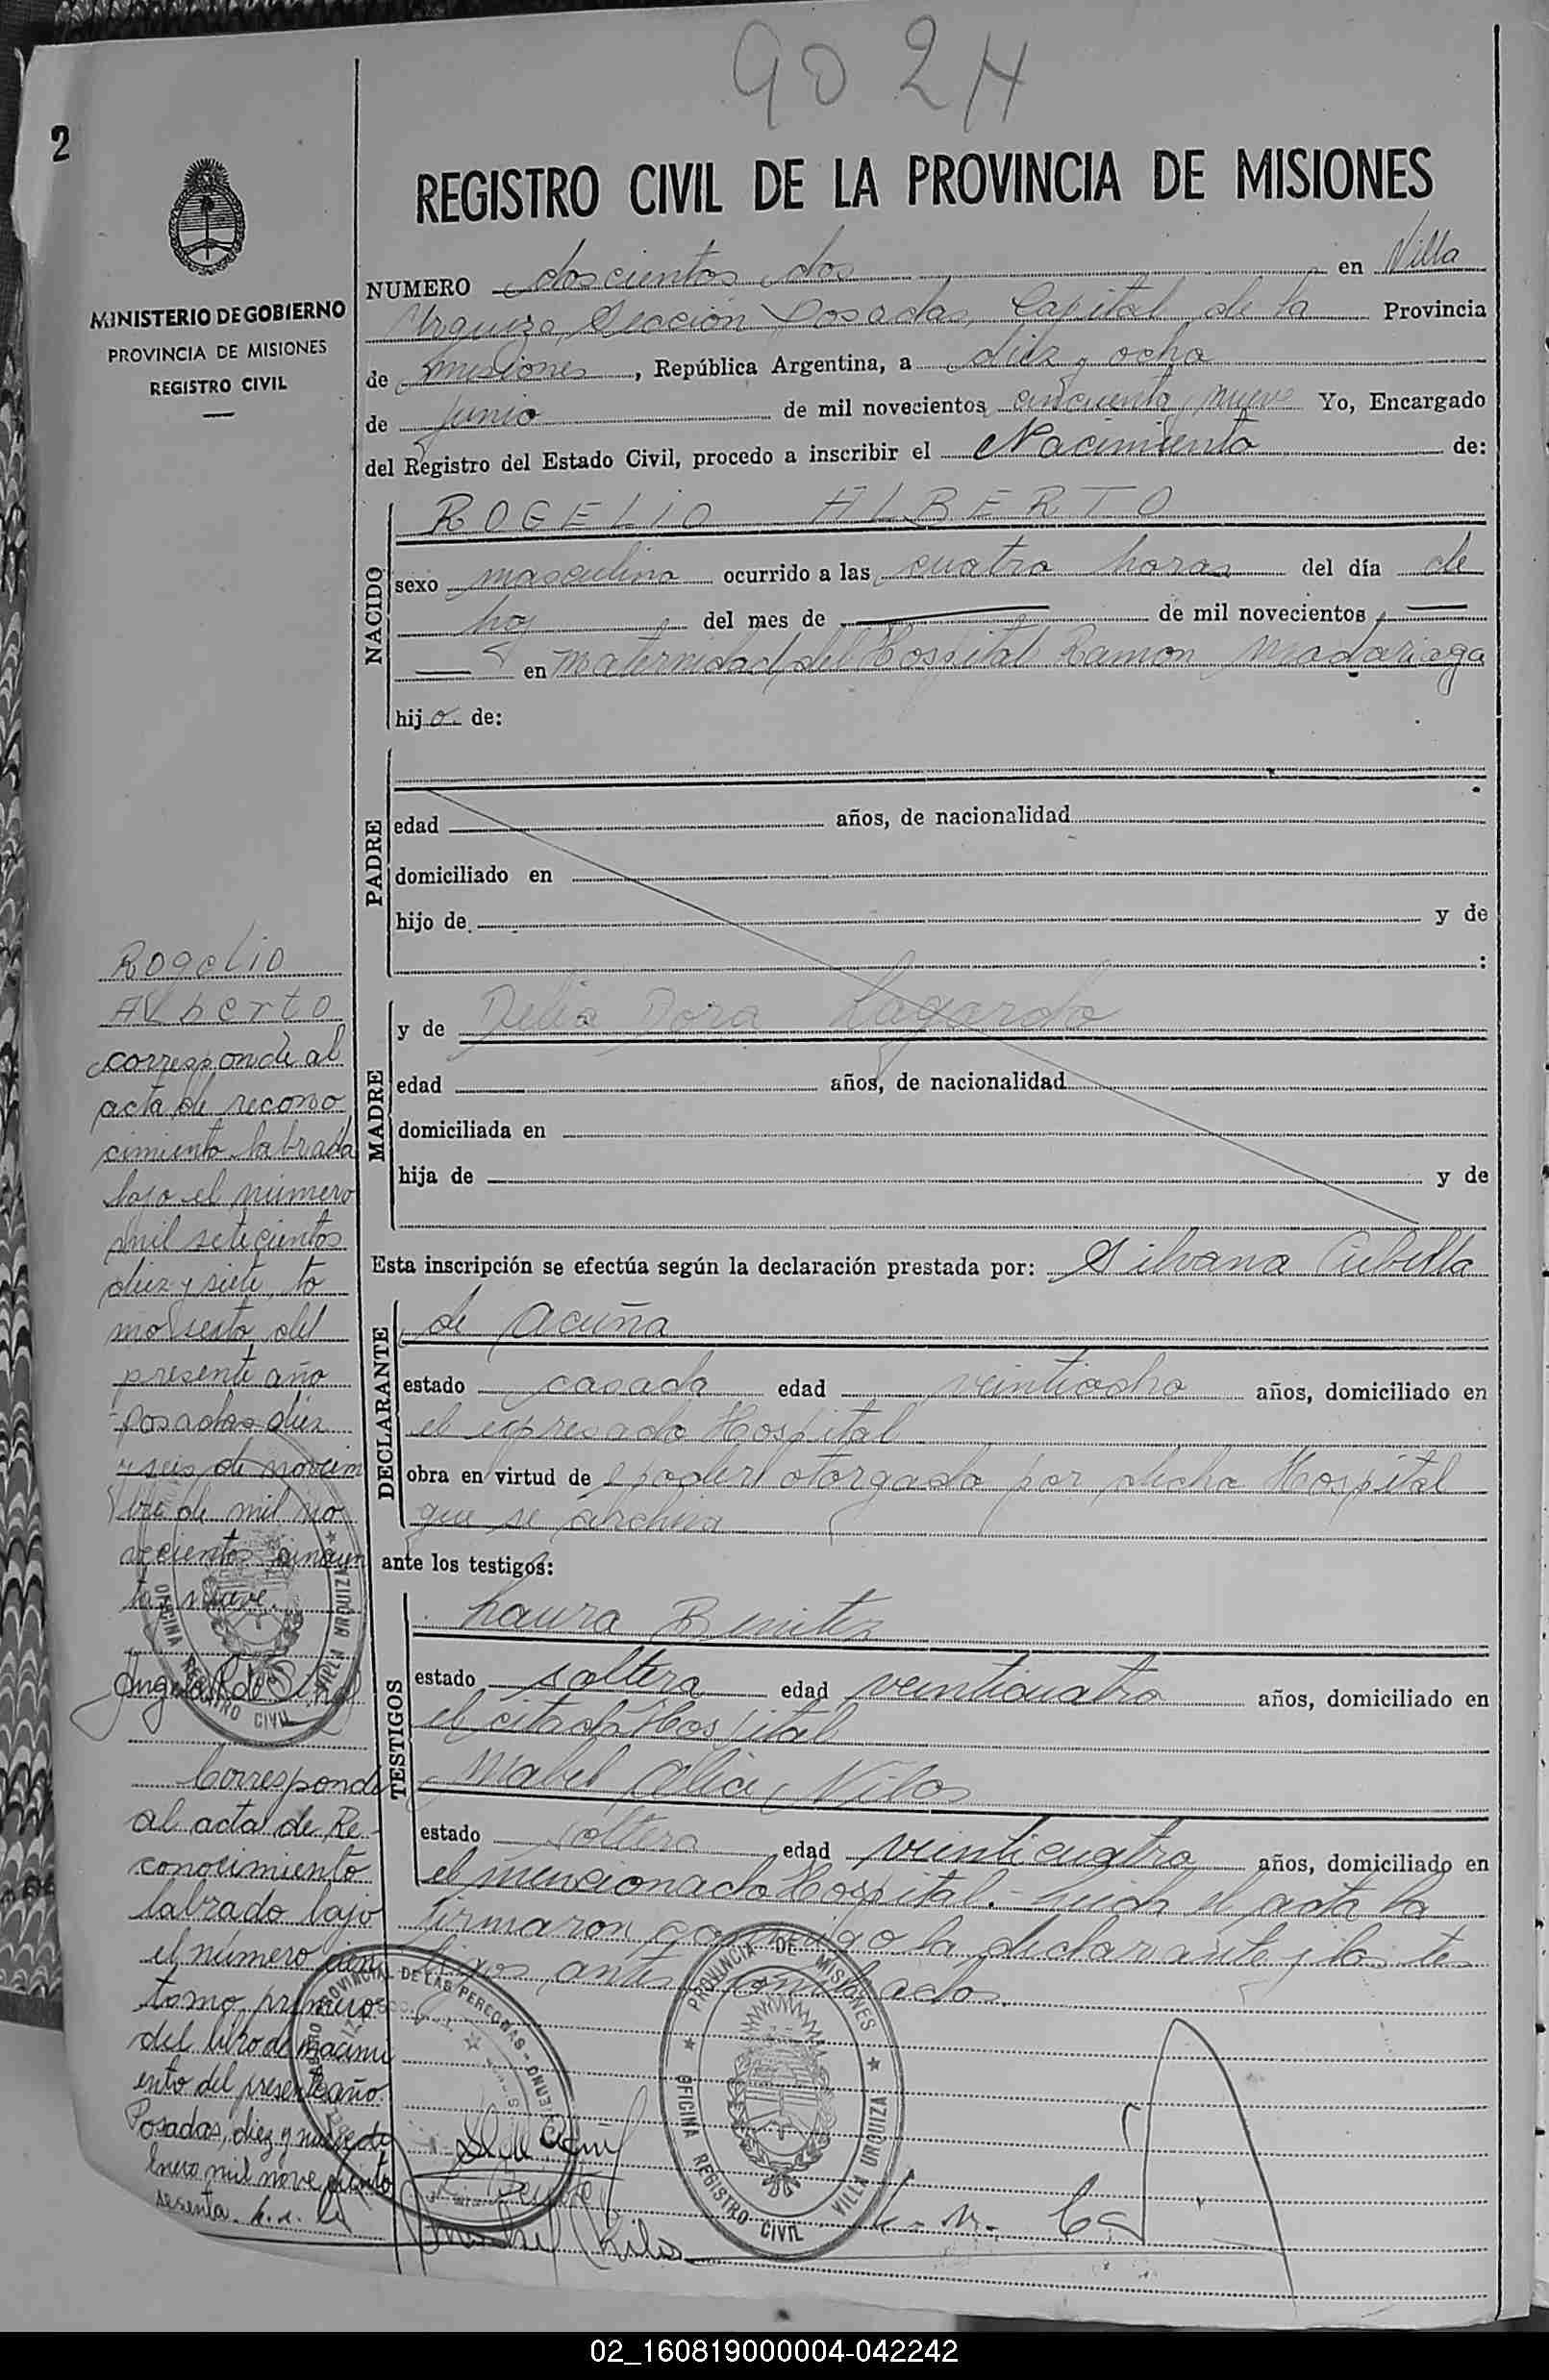 902H
2
REGISTRO CIVIL DE LA PROVINCIA DE MISIONES
MINISTERIO DE GOBIERNO
PROVINCIA DE MISIONES
REGISTRO CIVIL
NUMERO doscientos dos en Villa
Urquiza, Sección Posadas, Capital de la Provincia
de Misiones, República Argentina, a diez y ocho
de junio de mil novecientos cincuenta y nueve Yo, Encargado
del Registro del Estado Civil, procedo a inscribir el Nacimiento de:
NACIDO
ROGELIO ALBERTO
sexo masculino ocurrido a las cuatro horas del día de
hoy del mes de — de mil novecientos —
— en Maternidad del Hospital Ramon Madariaga
hijo de:
PADRE
edad años, de nacionalidad
domiciliado en
hijo de y de
:
MADRE
y de Delia Dora Lagardo
edad años, de nacionalidad
domiciliada en
hija de y de
Esta inscripción se efectúa según la declaración prestada por: Silvana Cubilla
DECLARANTE
de Acuña
estado casada edad veintiocho años, domiciliado en
el expresado Hospital
obra en virtud de poder otorgado por dicho Hospital
que se archiva
ante los testigos:
TESTIGOS
Laura Benitez
estado soltera edad veinticuatro años, domiciliado en
el citado Hospital
Mabel Alicia
estado soltera edad veinticuatro años, domiciliado en
el mencionado Hospital.- Leida el acta la
firmaron conmigo la declarante y los tes
tigos antes nombrados.
Rogelio
Alberto
corresponde al
acta de recono
cimiento labrada
bajo el número
mil setecientos
diez y siete, to
mo sexto del
presente año
Posadas diez
y seis de noviem
bre de mil no
vecientos cincuen
ta nueve.
Corresponde
al acta de Re-
conocimiento
labrado bajo
el número cien
tomo primero
del libro de nacimi
ento del presente año.
Posadas, diez y nueve de
Enero mil novecientos
sesenta.
OFICINA REGISTRO CIVIL VILLA URQUIZA
PROVINCIAL DE LAS PERSONAS
PROVINCIA DE MISIONES
OFICINA REGISTRO CIVIL VILLA URQUIZA
02_160819000004-042242